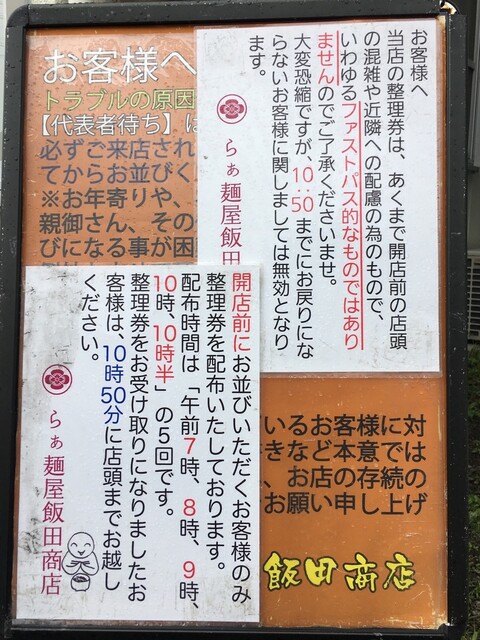 お客様へ
当店の整理券は、あくまで開店前の店頭
の混雑や近隣への配慮の為のもので、
いわゆるファストパス的なものではあり
ませんのでご了承くださいませ。
大変恐縮ですが、10:50までにお戻りにな
らないお客様に関しましては無効となり
ます。
らぁ麺屋飯田
開店前にお並びいただくお客様のみ
整理券を配布いたしております。
配布時間は「午前7時、8時、9時、
10時、10時半」の5回です。
整理券をお受け取りになりましたお
客様は、10時50分に店頭までお越し
ください。
らぁ麺屋飯田商店
お客様へ
トラブルの原因
【代表者待ち】は
必ずご来店され
てからお並びく
※お年寄りや、
親御さん、その
びになる事が困
いるお客様に対
きなど本意では
、お店の存続の
お願い申し上げ
飯田商店